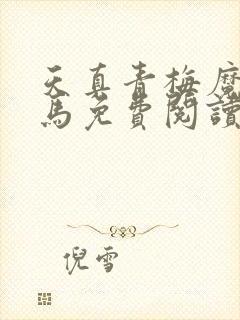 天真青梅魔
馬免費閱讀
倪雪